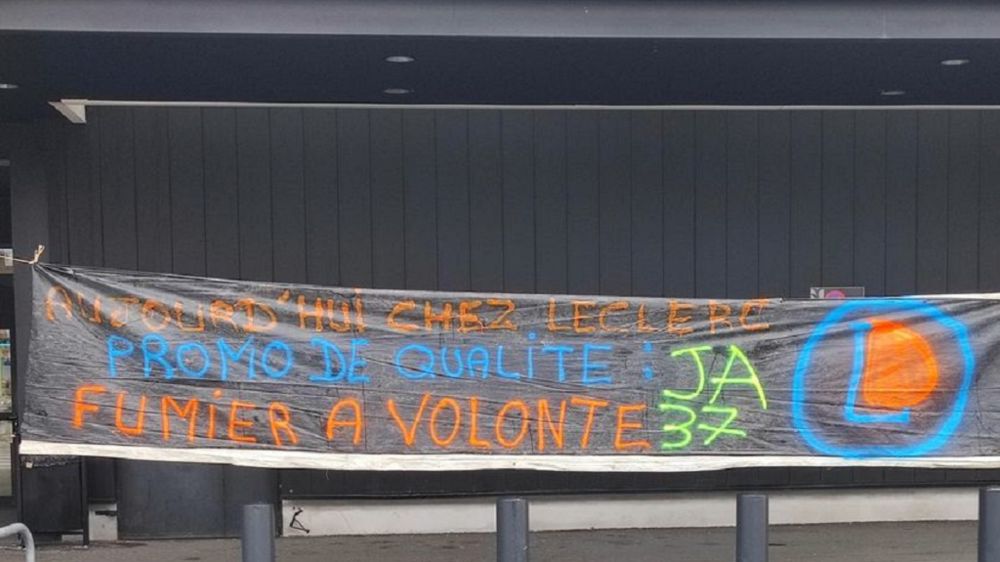 AUJOURD'HUI CHEZ LECLERC
PROMO DE QUALITE : JA
FUMIER A VOLONTE 37
L